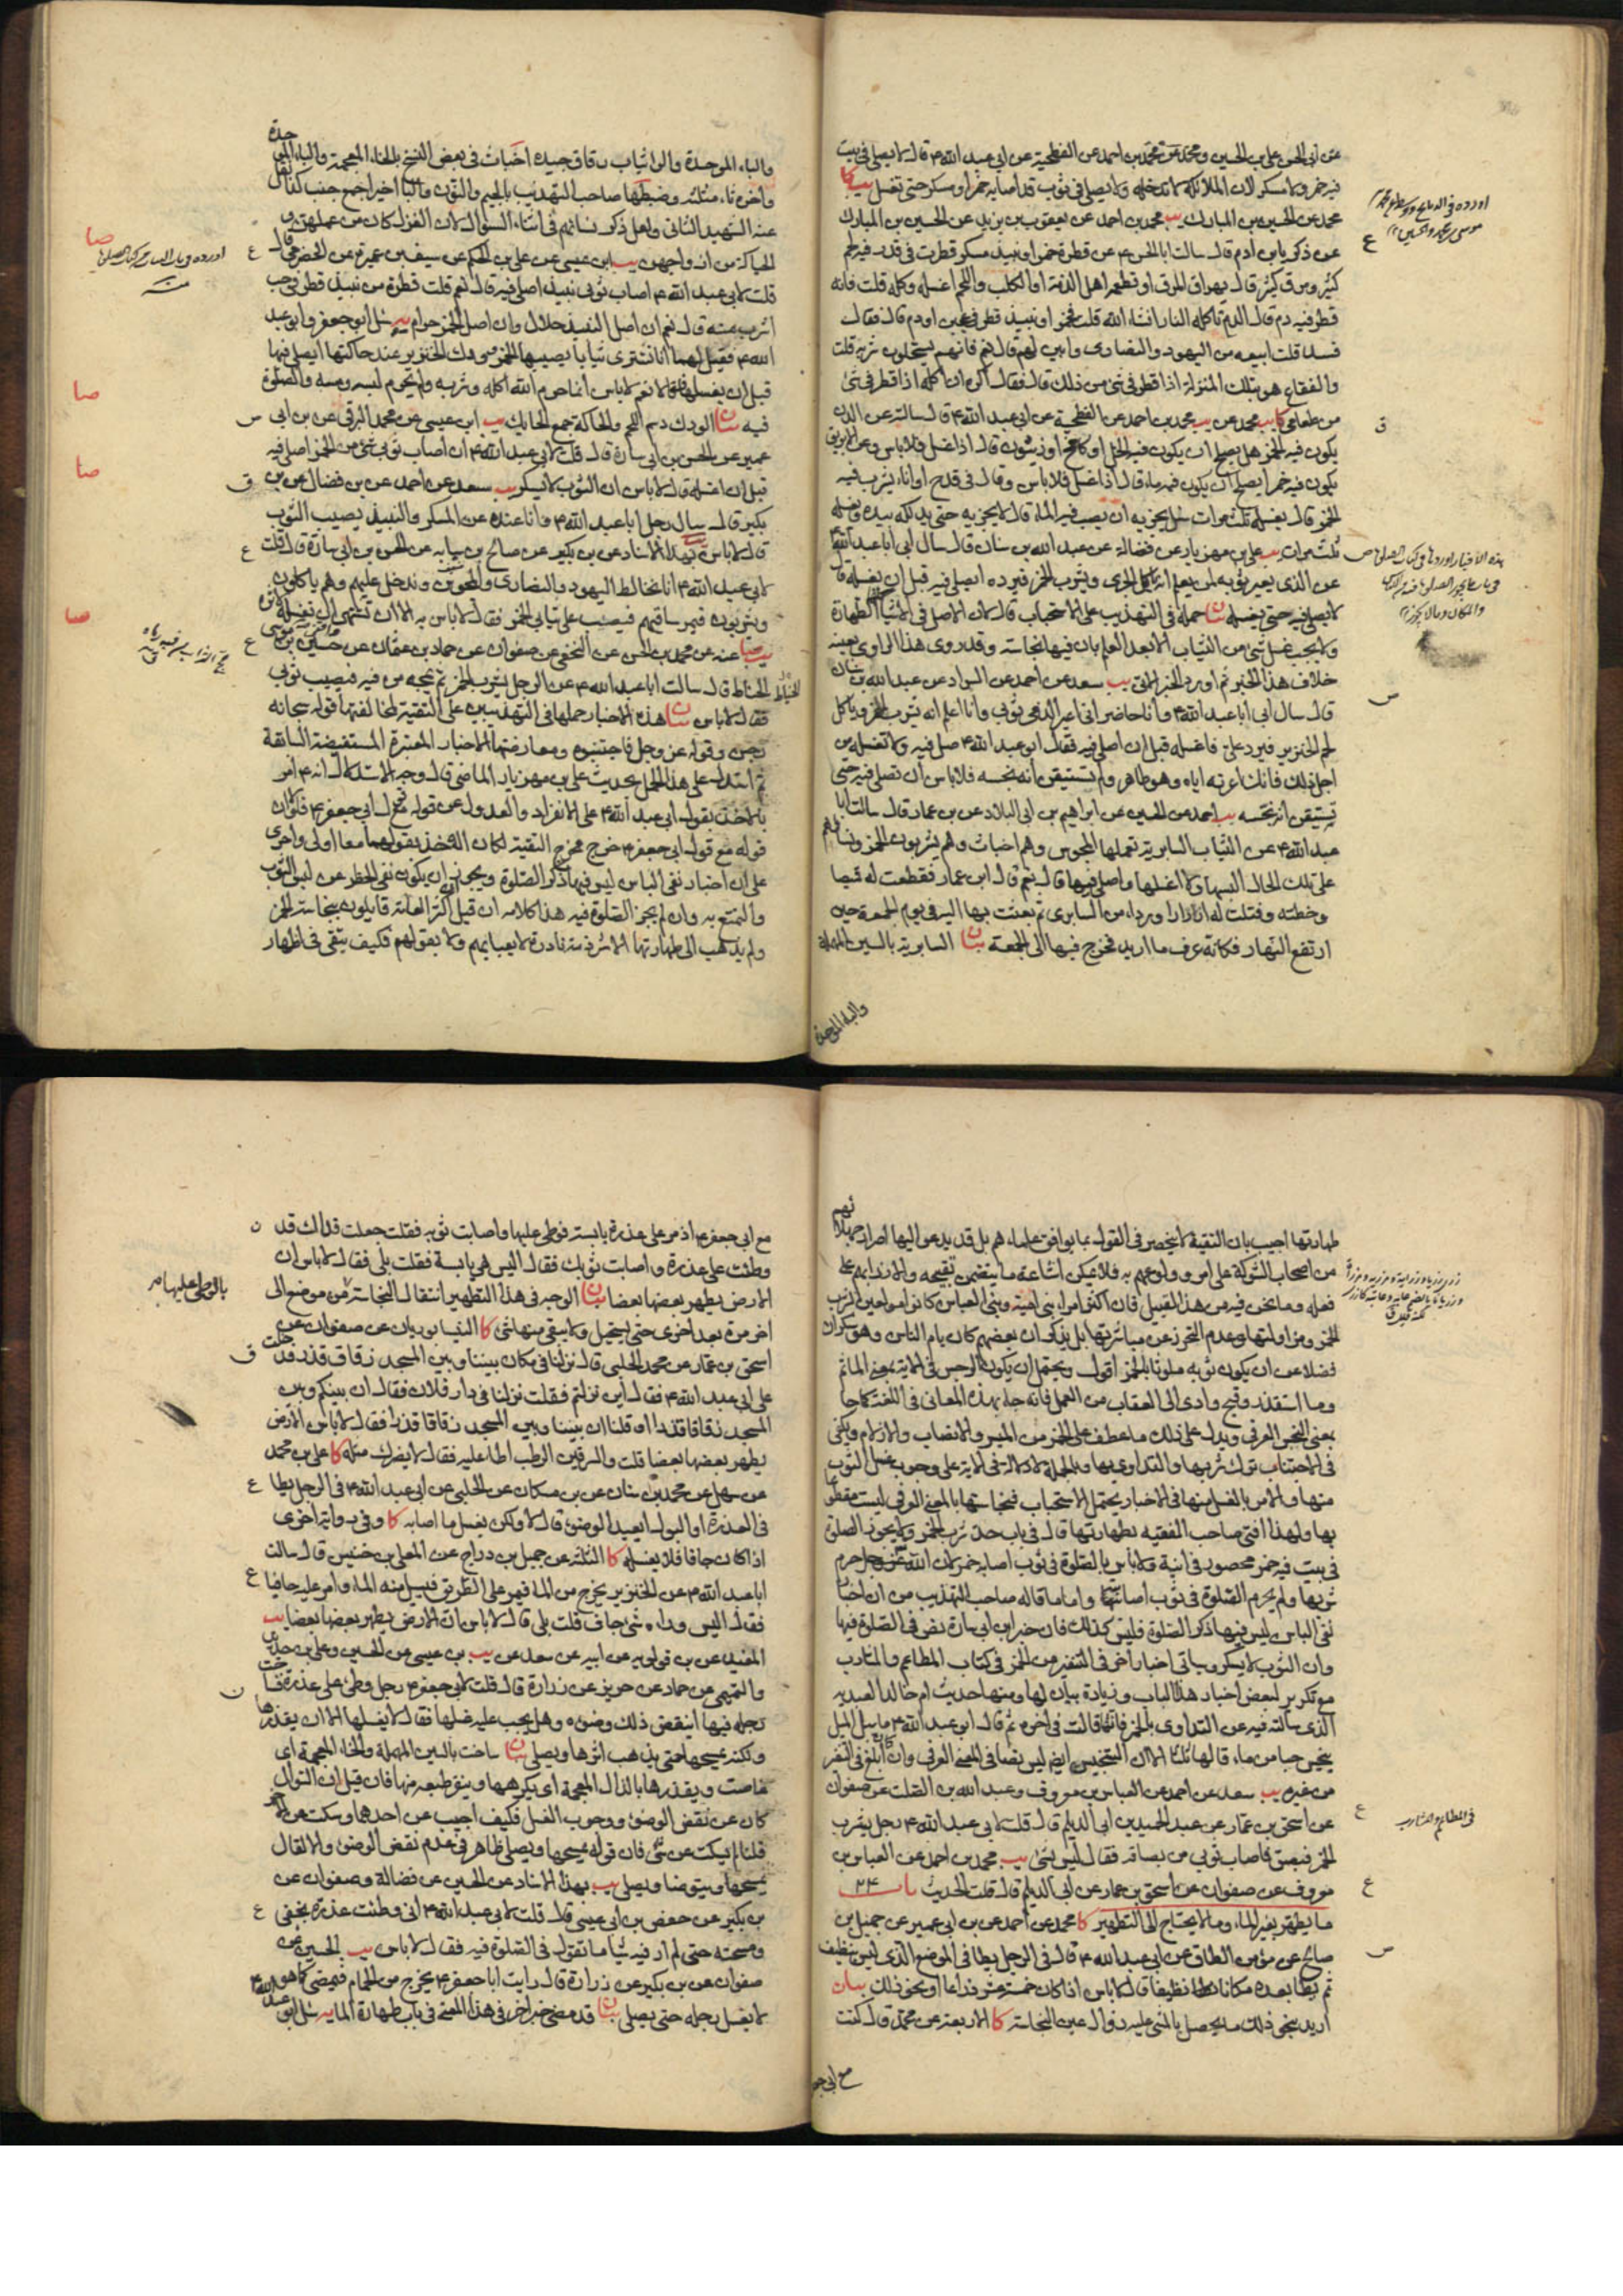 عن أبي الحسن علي بن الحسين ومحمد عن محمد بن احمد عن الفطحية عن ابي عبد الله ع قال لا يصلى في بيت
فيه خمر ولا مسكر لان الملائكة لا تدخله ولا يصلى في ثوب قد اصابه خمر او مسكر حتى تغسل يب كا
محمد عن الحسين بن المبارك يب محمد بن احمد عن يعقوب بن يزيد عن الحسين بن المبارك
عن زكريا بن ادم قال سالت ابا الحسن ع عن قطرة خمر او نبيذ مسكر قطرت في قدر فيه لحم
كثير ومرق كثير قال يهراق المرق او يطعمه اهل الذمة او الكلب واللحم اغسله وكله قلت فانه
قطر فيه دم قال الدم تاكله النار انشاء الله قلت فخمر او نبيذ قطر في عجين او دم قال فقال
فسد قلت ابيعه من اليهود والنصارى وابين لهم قال نعم فانهم يستحلون شربه قلت
والفقاع هو بتلك المنزلة اذا قطر في شئ من ذلك قال فقال اكره ان اكله اذا قطر في شئ
من طعامي كا يب محمد عن يب محمد بن احمد عن الفطحية عن ابي عبد الله ع قال سالته عن الدن
يكون فيه الخمر هل يصلح ان يكون فيه الخل او كامخ او زيتون قال اذا غسل فلا باس وعن الابريق
يكون فيه خمر ايصلح ان يكون فيه ماء قال اذا غسل فلا باس وقال في قدح او اناء يشرب فيه
الخمر قال يغسله ثلث مرات سئل يجزيه ان يصب فيه الماء قال لا يجزيه حتى يدلكه بيده ويغسله
ثلث مرات يب علي بن مهزيار عن فضالة عن عبد الله بن سنان قال سال ابي ابا عبد الله ع
عن الذي يعير ثوبه لمن يعلم انه ياكل الجري ويشرب الخمر فيرده ايصلي فيه قبل ان يغسله قال
لا يصلي فيه حتى يغسله بيان حمله في التهذيب على الاستحباب قال لان الاصل في الاشياء الطهارة
ولا يجب غسل شئ من الثياب الا بعد العلم بان فيها نجاسة وقد روى هذا الراوي بعينه
خلاف هذا الخبر ثم اورد الخبر الاتي يب سعد عن احمد عن السراد عن عبد الله بن سنان
قال سال ابي ابا عبد الله ع وانا حاضر اني اعير الذمي ثوبي وانا اعلم انه يشرب الخمر وياكل
لحم الخنزير فيرد علي فاغسله قبل ان اصلي فيه فقال ابو عبد الله ع صل فيه ولا تغسله من
اجل ذلك فانك اعرته اياه وهو طاهر ولم تستيقن انه نجسه فلا باس ان تصلي فيه حتى
تستيقن انه نجسه يب احمد عن الحسين عن ابراهيم بن ابي البلاد عن بن عمار قال سالت ابا
عبد الله ع عن الثياب السابرية تعملها المجوس وهم اخباث وهم يشربون الخمر ونساؤهم
على تلك الحال البسها ولا اغسلها واصلي فيها قال نعم قال ابن عمار فقطعت له قميصا
وخطته وفتلت له ازارا ورداء من السابري ثم بعثت بها اليه في يوم الجمعة حين
ارتفع النهار فكانه عرف ما اريد فخرج فيها الى الجمعة بيان السابرية بالسين المهملة
والباء الموحدة
والباء الموحدة والراء ثياب رقاق جيدة اخباث في بعض النسخ بالخاء المعجمة والباء الموحدة
واخره ثاء مثلثة وضبطها صاحب التهذيب بالجيم والنون والباء اخيرا جمع جنب كذا نقل
عنه الشهيد الثاني ولعل ذكر نسائهم في اثناء السؤال لان الغزل كان من عملهن
الحياكة من ازواجهن يب ابن عيسى عن علي بن الحكم عن سيف بن عميرة عن الحضرمي قال
قلت لابي عبد الله ع اصاب ثوبي نبيذ اصلي فيه قال نعم قلت قطرة من نبيذ قطر في حب
اشرب منه قال نعم ان اصل النبيذ حلال وان اصل الخمر حرام يه سئل ابو جعفر وابو عبد
الله ع فقيل لهما انا نشتري ثيابا يصيبها الخمر وودك الخنزير عند حاكتها ايصلى فيها
قبل ان يغسلها فقالا نعم لا باس انما حرم الله اكله وشربه ولم يحرم لبسه ومسه والصلوة
فيه بيان الودك دسم اللحم والحاكة جمع الحايك يب ابن عيسى عن محمد البرقي عن بن ابي
عمير عن الحسن بن ابي سارة قال قلت لابي عبد الله ع ان اصاب ثوبي شئ من الخمر اصلي فيه
قبل ان اغسله قال لا باس ان الثوب لا يسكر يب سعد عن احمد عن بن فضال عن بن
بكير قال سال رجل ابا عبد الله ع وانا عنده عن المسكر والنبيذ يصيب الثوب
قال لا باس به يب بهذا الاسناد عن بن بكير عن صالح بن سيابه عن الحسن بن ابي سارة قال قلت
لابي عبد الله ع انا نخالط اليهود والنصارى والمجوس وندخل عليهم وهم ياكلون
ويشربون فيمر ساقيهم فيصب على ثيابي الخمر فقال لا باس به الا ان تشتهي ان تغسله
عنه عن محمد بن الحسن عن النخعي عن صفوان عن حماد بن عثمان عن حسين بن موسى
الحناط قال سالت ابا عبد الله ع عن الرجل يشرب الخمر ثم يمجه من فيه فيصيب ثوبي
فقال لا باس بيان هذه الاخبار حملها في التهذيبين على التقية لمخالفتها قوله سبحانه
رجس وقوله عز وجل فاجتنبوه ومعارضتها الاخبار المعتبرة المستفيضة السابقة
ثم استدل على هذا الحمل بحديث علي بن مهزيار الماضي قال وجه الاستدلال انه ع امر
بالاخذ بقول ابي عبد الله ع على الانفراد والعدول عن قوله مع ابي جعفر ع فلو كان
قوله مع قول ابي جعفر ع خرج مخرج التقية لكان الاخذ بقولهما معا اولى واحرى
على ان اخبار نفي الباس ليس فيها ذكر الصلوة ويجوز ان يكون نفي الحظر عن لبس الثوب
والتمتع به وان لم يجز الصلوة فيه هذا كلامه ان قيل اكثر العامة قايلون بنجاسة الخمر
ولم يذهب الى طهارتها الا شرذمة نادرة لا يعبا بهم ولا بقولهم فكيف يتقى في اظهار
طهارتها اجيب بان التقية لا تنحصر في القول بما يوافق علماءهم بل قد يدعو اليها اصرار جهلائهم
من اصحاب الشوكة على امر وولوعهم به فلا يمكن اشاعة ما يتضمن تقبيحه والازراء بهم على
فعله وما نحن فيه من هذا القبيل فان اكثر امراء بني امية وبني العباس كانوا مولعين بشرب
الخمر ومزاولتها وعدم التحرز عن مباشرتها بل يذكر ان بعضهم كان يام الناس وهو سكران
فضلا عن ان يكون ثوبه ملوثا بالخمر اقول ويحتمل ان يكون الرجس في الاية بمعنى الماثم
وما استقذر وقبح وادى الى العقاب من العمل فانه جاء بهذه المعاني في اللغة كما جاء
بمعنى النجس العرفي ويدل على ذلك ما عطف على الخمر من الميسر والانصاب والازلام ويكفي
في الاجتناب ترك شربها والتداوي بها وبالجملة لا دلالة في الاية على وجوب غسل الثوب
منها والامر بالغسل منها في الاخبار يحتمل الاستحباب فنجاستها بالمعنى العرفي ليست مقطوعا
بها ولهذا افتى صاحب الفقيه بطهارتها قال في باب حد شرب الخمر ولا يجوز الصلوة
في بيت فيه خمر محصور في انية ولا باس بالصلوة في ثوب اصابه خمر لان الله عز وجل حرم
شربها ولم يحرم الصلوة في ثوب اصابتها واما ما قاله صاحب التهذيب من ان اخبار
نفي الباس ليس فيها ذكر الصلوة فليس كذلك فان خبر ابن ابي سارة نص في الصلوة فيها
وان الثوب لا يسكر وياتي اخبار اخر في التنفير من الخمر في كتاب المطاعم والمشارب
مع تكرير لبعض اخبار هذا الباب وزيادة بيان لها ومنها حديث ام خالد العبدية
الذي سالته فيه عن التداوي بالخمر فانها قالت في اخره ثم قال ابو عبد الله ع ما يبل الميل
ينجس حبا من ماء قالها ثلثا الا ان التنجيس ايضم ليس نصا في المعنى العرفي وان كان ابلغ في التنفر
من غيره يب سعد عن احمد عن العباس بن معروف وعبد الله بن الصلت عن صفوان
عن اسحق بن عمار عن عبد الحميد بن ابي الديلم قال قلت لابي عبد الله ع رجل يشرب
الخمر فيبصق فاصاب ثوبي من بصاقه فقال ليس بشئ يب محمد بن احمد عن العباس بن
معروف عن صفوان عن اسحق بن عمار عن ابي الديلم قال قلت الحديث باب ٢٤
ما يطهر بغير الماء وما لا يحتاج الى التطهير كا محمد عن احمد عن بن ابي عمير عن جميل بن
صالح عن مؤمن الطاق عن ابي عبد الله ع قال في الرجل يطا في الموضع الذي ليس بنظيف
ثم يطا بعده مكانا نظيفا قال لا باس اذا كان خمسة عشر ذراعا او نحو ذلك بيان
اريد بنحو ذلك ما يحصل بالمشي عليه زوال عين النجاسة كا الاربعة عن محمد قال كنت
مع ابي جعفر
مع ابي جعفر ع اذ مر على عذرة يابسة فوطئ عليها واصابت ثوبه فقلت جعلت فداك قد
وطئت على عذرة واصابت ثوبك فقال اليس هي يابسة فقلت بلى فقال لا باس ان
الارض يطهر بعضها بعضا بيان الوجه في هذا التطهير انتقال النجاسة من موضع الى
اخر مرة بعد اخرى حتى يستحيل ولا يبقى منها شئ كا النيسابوريان عن صفوان عن
اسحق بن عمار عن محمد الحلبي قال نزلنا في مكان بيننا وبين المسجد زقاق قذر فدخلت
على ابي عبد الله ع فقال اين نزلتم فقلت نزلنا في دار فلان فقال ان بينكم وبين
المسجد زقاقا قذرا او قلنا ان بيننا وبين المسجد زقاقا قذرا فقال لا باس الارض
يطهر بعضها بعضا قلت والسرقين الرطب اطا عليه فقال لا يضرك مثله كا علي بن محمد
عن سهل عن محمد بن سنان عن بن مسكان عن الحلبي عن ابي عبد الله ع في الرجل يطا
في العذرة او البول ايعيد الوضوء قال لا ولكن يغسل ما اصابه كا وفي رواية اخرى
اذا كان جافا فلا يغسله كا الثلثة عن جميل بن دراج عن المعلى بن خنيس قال سالت
ابا عبد الله ع عن الخنزير يخرج من الماء فيمر على الطريق فيسيل منه الماء وامر عليه حافيا
فقال اليس وراءه شئ جاف قلت بلى قال لا باس ان الارض يطهر بعضها بعضا يب
المفيد عن بن قولويه عن ابيه عن سعد عن يب بن عيسى عن الحسين وعلي بن حديد
والتميمي عن حماد عن حريز عن زرارة قال قلت لابي جعفر ع رجل وطئ على عذرة فساخت
رجله فيها اينقض ذلك وضوءه وهل يجب عليه غسلها فقال لا يغسلها الا ان يقذرها
ولكنه يمسحها حتى يذهب اثرها ويصلي بيان ساخت بالسين المهملة والخاء المعجمة اي
غاصت ويقذرها بالذال المعجمة اي يكرهها وينفر طبعه منها فان قيل ان السؤال
كان عن نقض الوضوء ووجوب الغسل فكيف اجيب عن احدهما وسكت عن الاخر
قلنا لم يسكت عن شئ فان قوله يمسحها ويصلي ظاهر في عدم نقض الوضوء والا لقال
يمسحها ويتوضا ويصلي يب بهذا الاسناد عن الحسين عن فضالة وصفوان عن
بن بكير عن حفص بن ابي عيسى قال قلت لابي عبد الله ع اني وطئت عذرة بخفي
ومسحته حتى لم ار فيه شيئا ما تقول في الصلوة فيه فقال لا باس يب الحسين عن
صفوان عن بن بكير عن زرارة قال رايت ابا جعفر ع يخرج من الحمام فيمضي كما هو
لا يغسل رجله حتى يصلي بيان قد مضى خبر اخر في هذا المعنى في باب طهارة الماء يه سئل ابو عبد الله ع
بالوطي عليها م
في المطاعم والمشارب